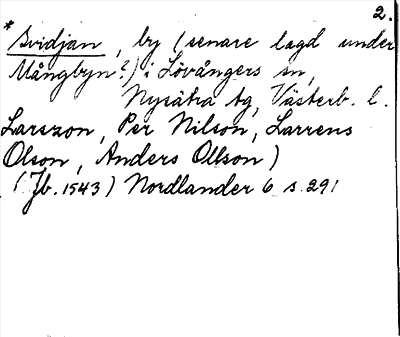 2.
* Svidjan, by (senare lagd under
Mångbyn?) i Lövångers sn,
Nysätra tg, Västerb. l.
Larszon, Per Nilson, Larrens
Olson, Anders Ollson)
(Jb. 1543) Nordlander 6 s. 291